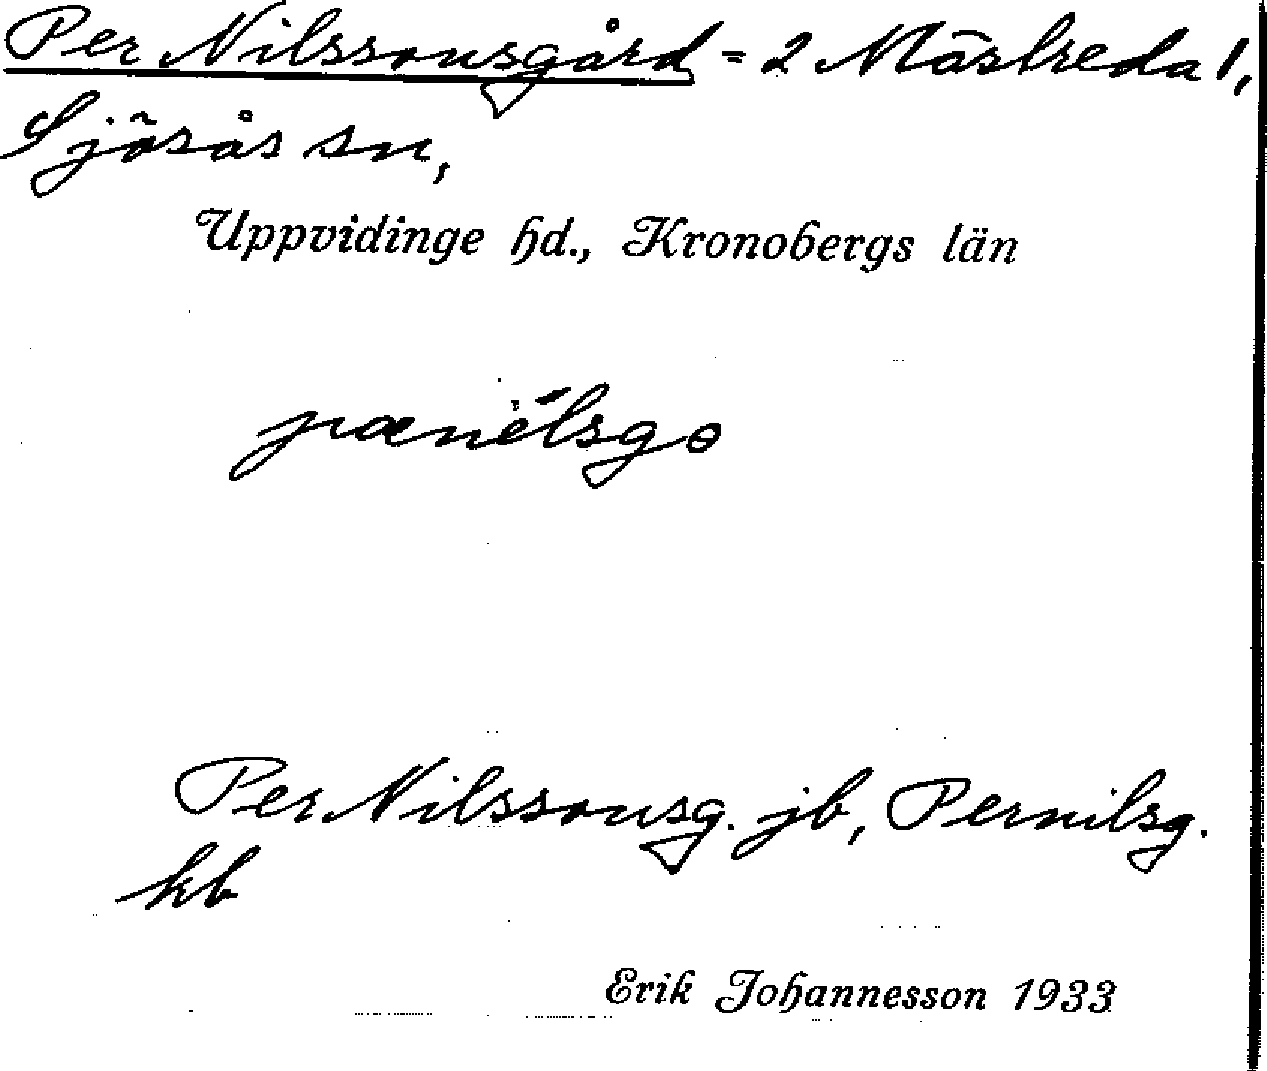 Per Nilssonsgård = 2 Mästreda 1,
Sjösås sn,
Uppvidinge hd., Kronobergs län
pænélsgo
Per Nilssonsg. jb, Pernilsg.
kb
Erik Johannesson 1933